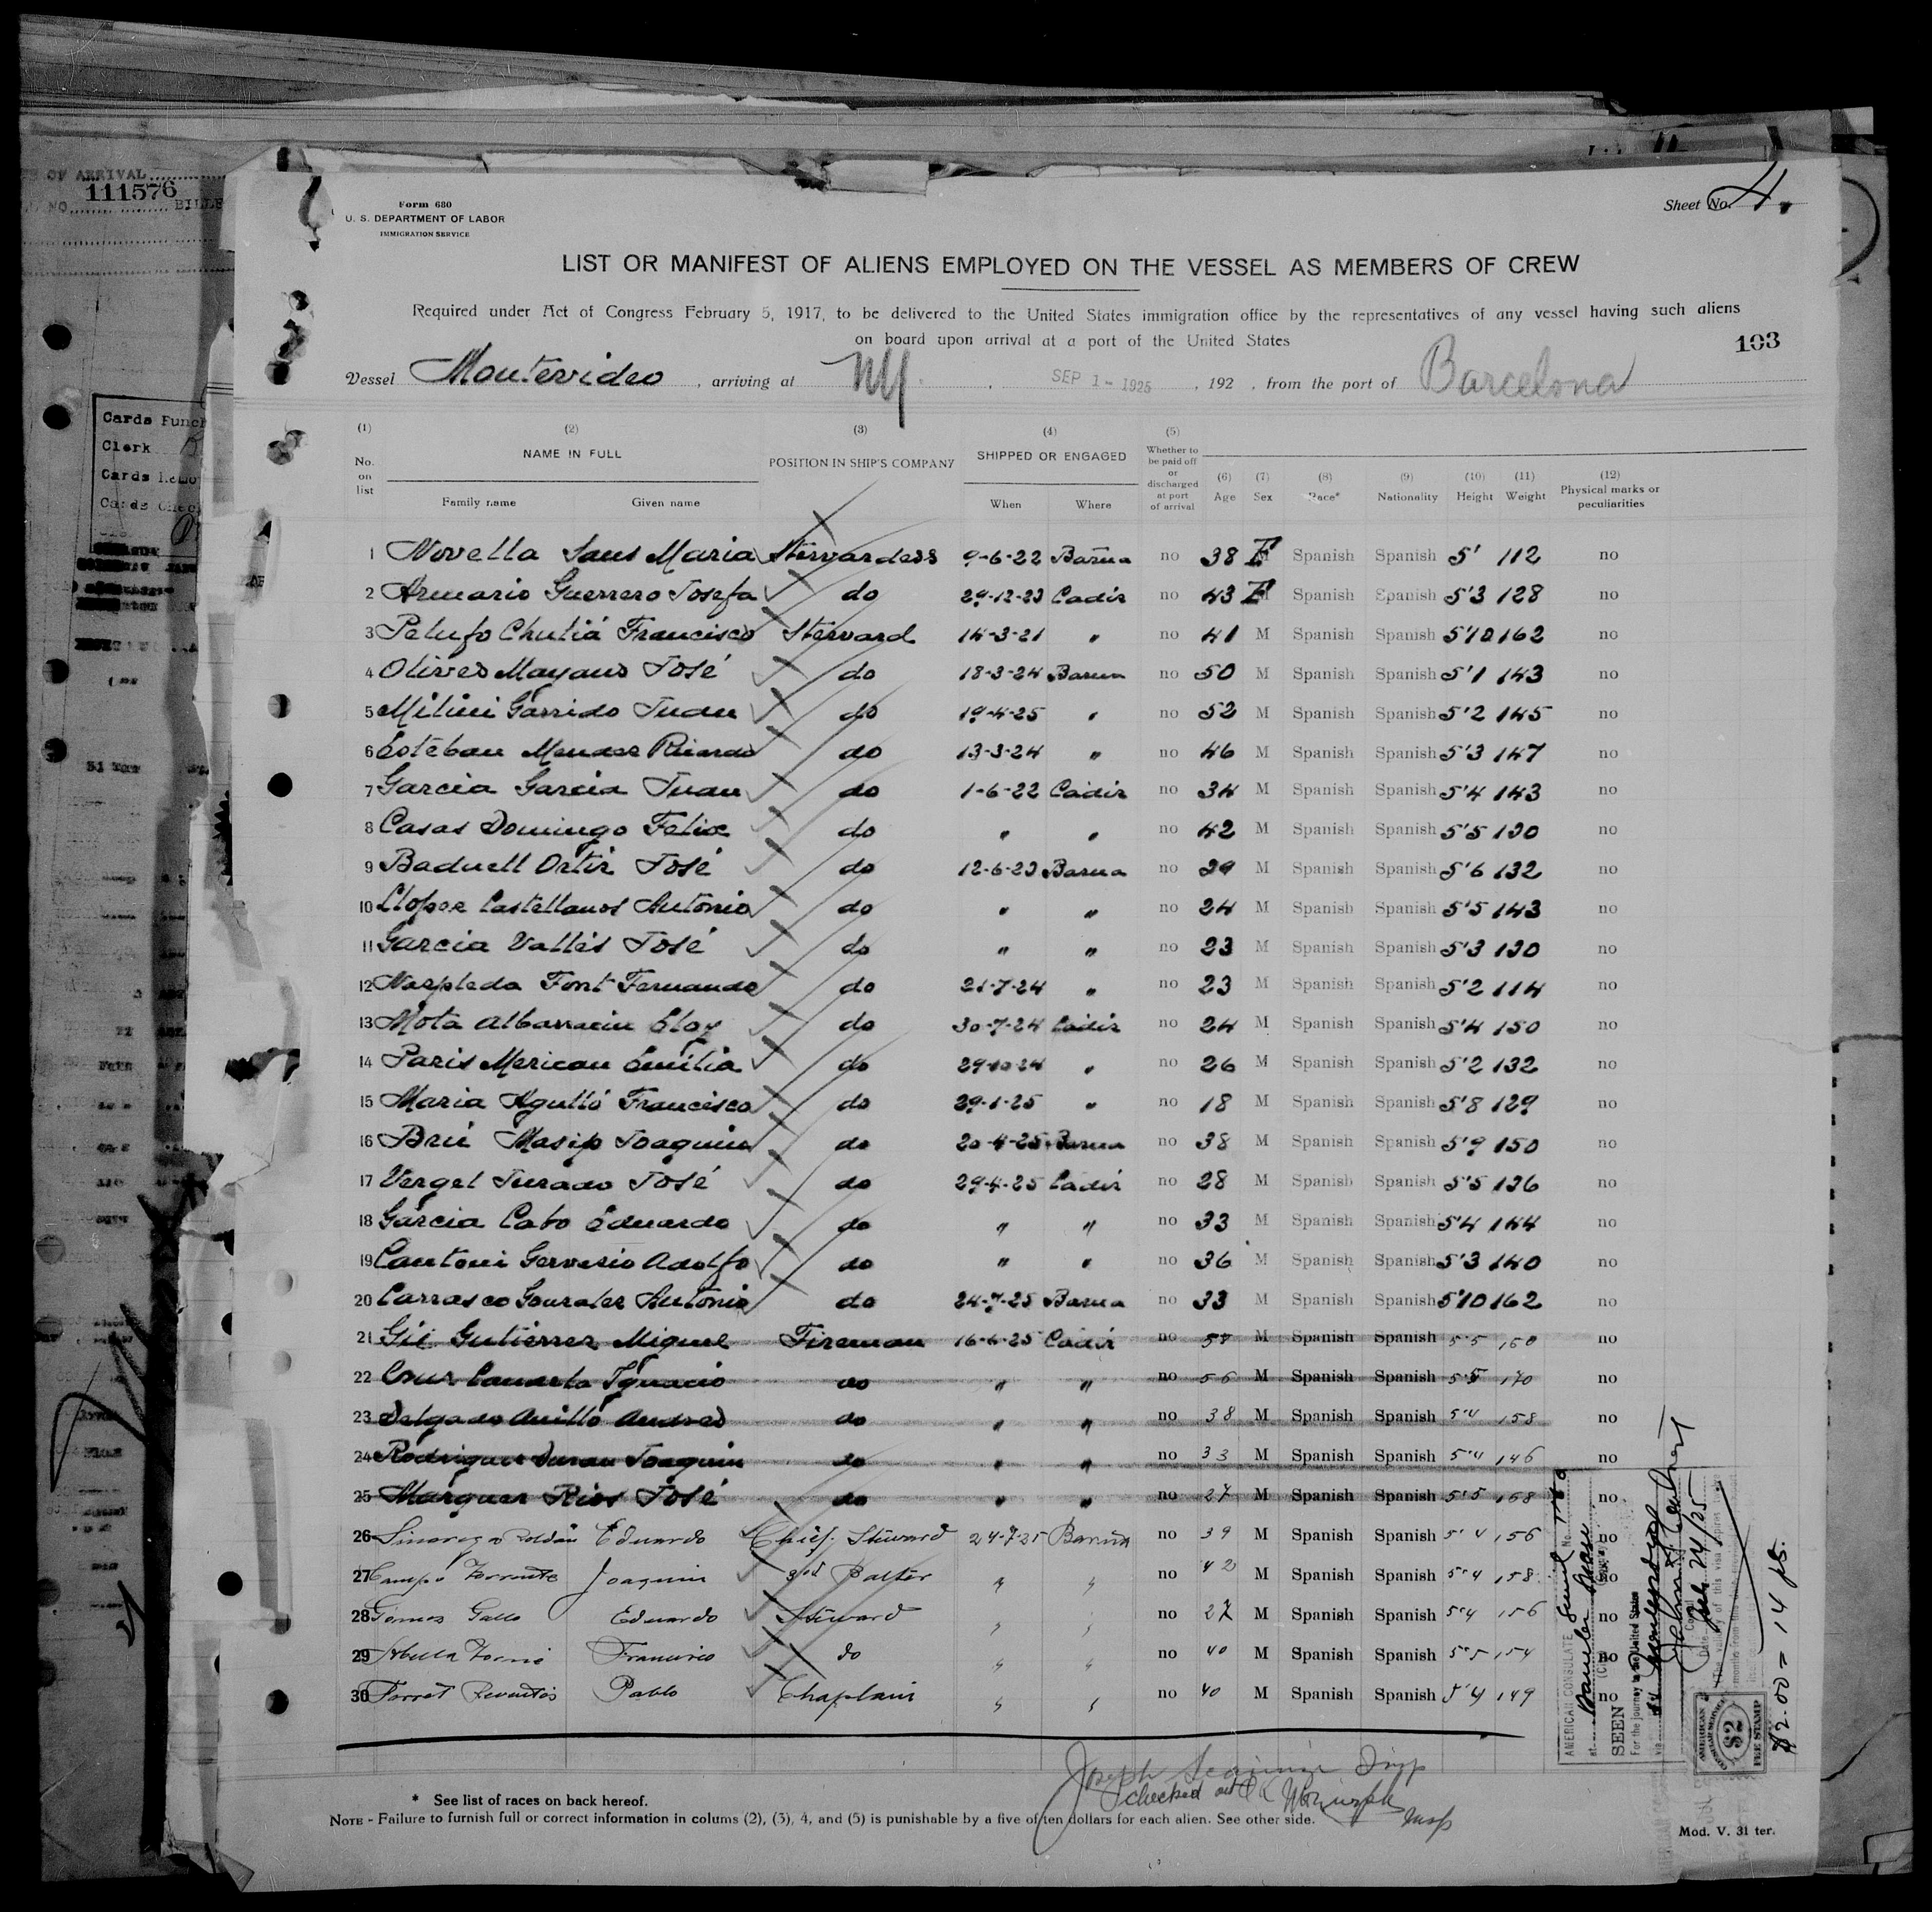 OF ARRIVAL
NO. 111576 BILLE
Cards Punch
Clerk
Cards
Cards Chec
Form 680
U. S. DEPARTMENT OF LABOR
IMMIGRATION SERVICE
Sheet No. 4.
LIST OR MANIFEST OF ALIENS EMPLOYED ON THE VESSEL AS MEMBERS OF CREW
Required under Act of Congress February 5, 1917, to be delivered to the United States immigration office by the representatives of any vessel having such aliens
on board upon arrival at a port of the United States
103
Vessel Montevideo, arriving at NY, SEP 1 - 1925, 192 , from the port of Barcelona
(1) (2) (3) (4) (5)
No. on list NAME IN FULL POSITION IN SHIP'S COMPANY SHIPPED OR ENGAGED Whether to be paid off or discharged at port of arrival (6) Age (7) Sex (8) Race* (9) Nationality (10) Height (11) Weight (12) Physical marks or peculiarities
Family name Given name When Where
1 Novella Sans Maria Stewardess 9-6-22 Barna no 38 F Spanish Spanish 5' 112 no
2 Armario Guerrero Josefa do 29-12-23 Cadiz no 43 F Spanish Spanish 5'3 128 no
3 Pelufo Chulia Francisco Steward 14-3-21 " no 41 M Spanish Spanish 5'10 162 no
4 Olives Mayans José do 18-3-24 Barna no 50 M Spanish Spanish 5'1 143 no
5 Garrido Juan do 19-4-25 " no 52 M Spanish Spanish 5'2 145 no
6 Esteban Mendez Ricardo do 13-3-24 " no 46 M Spanish Spanish 5'3 147 no
7 Garcia Garcia Juan do 1-6-22 Cadiz no 34 M Spanish Spanish 5'4 143 no
8 Casas Domingo Felix do " " no 42 M Spanish Spanish 5'5 130 no
9 Baduell Ortiz José do 12-6-23 Barna no 29 M Spanish Spanish 5'6 132 no
10 Llopez Castellanos Antonio do " " no 24 M Spanish Spanish 5'5 143 no
11 Garcia Vallés José do " " no 23 M Spanish Spanish 5'3 130 no
12 Naspleda Font Fernando do 21-7-24 " no 23 M Spanish Spanish 5'2 114 no
13 Mota Albarracin Eloy do 30-7-24 Cadiz no 24 M Spanish Spanish 5'4 150 no
14 Paris Merican Emilia do 29-10-24 " no 26 M Spanish Spanish 5'2 132 no
15 Maria Agulló Francisco do 29-1-25 " no 18 M Spanish Spanish 5'8 129 no
16 Brú Masip Joaquin do 20-4-25 Barna no 38 M Spanish Spanish 5'9 150 no
17 Vergel Jurado José do 29-4-25 Cadiz no 28 M Spanish Spanish 5'5 136 no
18 Garcia Cabo Eduardo do " " no 33 M Spanish Spanish 5'4 144 no
19 Cantoni Gervasio Adolfo do " " no 36 M Spanish Spanish 5'3 140 no
20 Carrasco Gonzalez Antonio do 24-7-25 Barna no 33 M Spanish Spanish 5'10 162 no
21 Gil Gutiérrez Miguel Fireman 16-6-25 Cadiz no M Spanish Spanish 5'5 150 no
22 Cruz Ignacio do " " no 56 M Spanish Spanish 5'5 170 no
23 Delgado Anilló Andres do " " no 38 M Spanish Spanish 5'4 158 no
24 Rodriguez Duran Joaquin do " " no 33 M Spanish Spanish 5'4 146 no
25 Marquez Rios José do " " no 27 M Spanish Spanish 5'5 168 no
26 Roldán Eduardo Chief Steward 24-7-25 Barna no 39 M Spanish Spanish 5'4 156 no
27 Campo Torrente Joaquin 3rd " " no 42 M Spanish Spanish 5'4 158 no
28 Gomez Gallo Eduardo Steward " " no 27 M Spanish Spanish 5'4 156 no
29 Abella Francisco do " " no 40 M Spanish Spanish 5'5 154 no
30 Pablo Chaplain " " no 40 M Spanish Spanish 5'4 149 no
AMERICAN CONSULATE
at
SEEN
For the journey to the United States
via
Date July 24/25
The validity of this visa expires
AMERICAN CONSULAR SERVICE $2 FEE STAMP
$2.00 = 14 ps.
Joseph Insp
Checked out OK Insp
* See list of races on back hereof.
NOTE - Failure to furnish full or correct information in colums (2), (3), 4, and (5) is punishable by a five of ten dollars for each alien. See other side.
Mod. V. 31 ter.